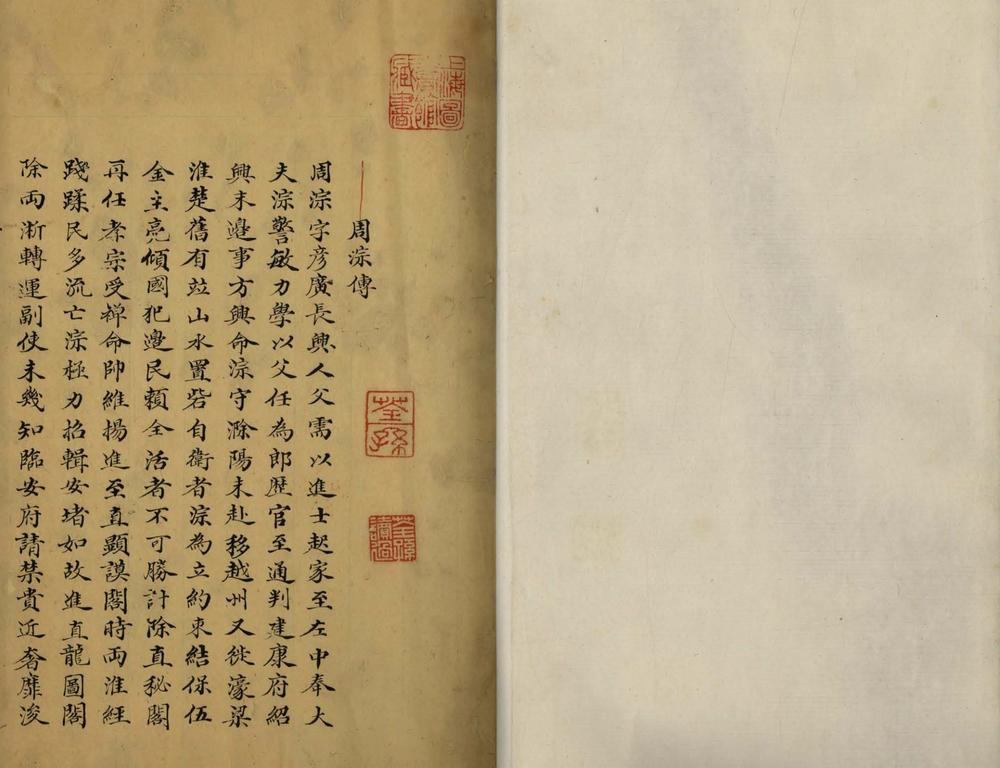 上海圖書館藏書
周淙傳
荃孫
荃孫讀過
周淙字彥廣長興人父需以進士起家至左中奉大
夫淙警敏力學以父任為郎歷官至通判建康府紹
興末邊事方興命淙守滁陽未赴移越州又徙濠梁
淮楚舊有竝山水置砦自衛者淙為立約束結保伍
金主亮傾國犯邊民賴全活者不可勝計除直秘閣
再任孝宗受禅命帥維揚進至直顯謨閣時兩淮經
踐蹂民多流亡淙極力招輯安堵如故進直龍圖閣
除両浙轉運副使未幾知臨安府請禁貴近奢靡浚